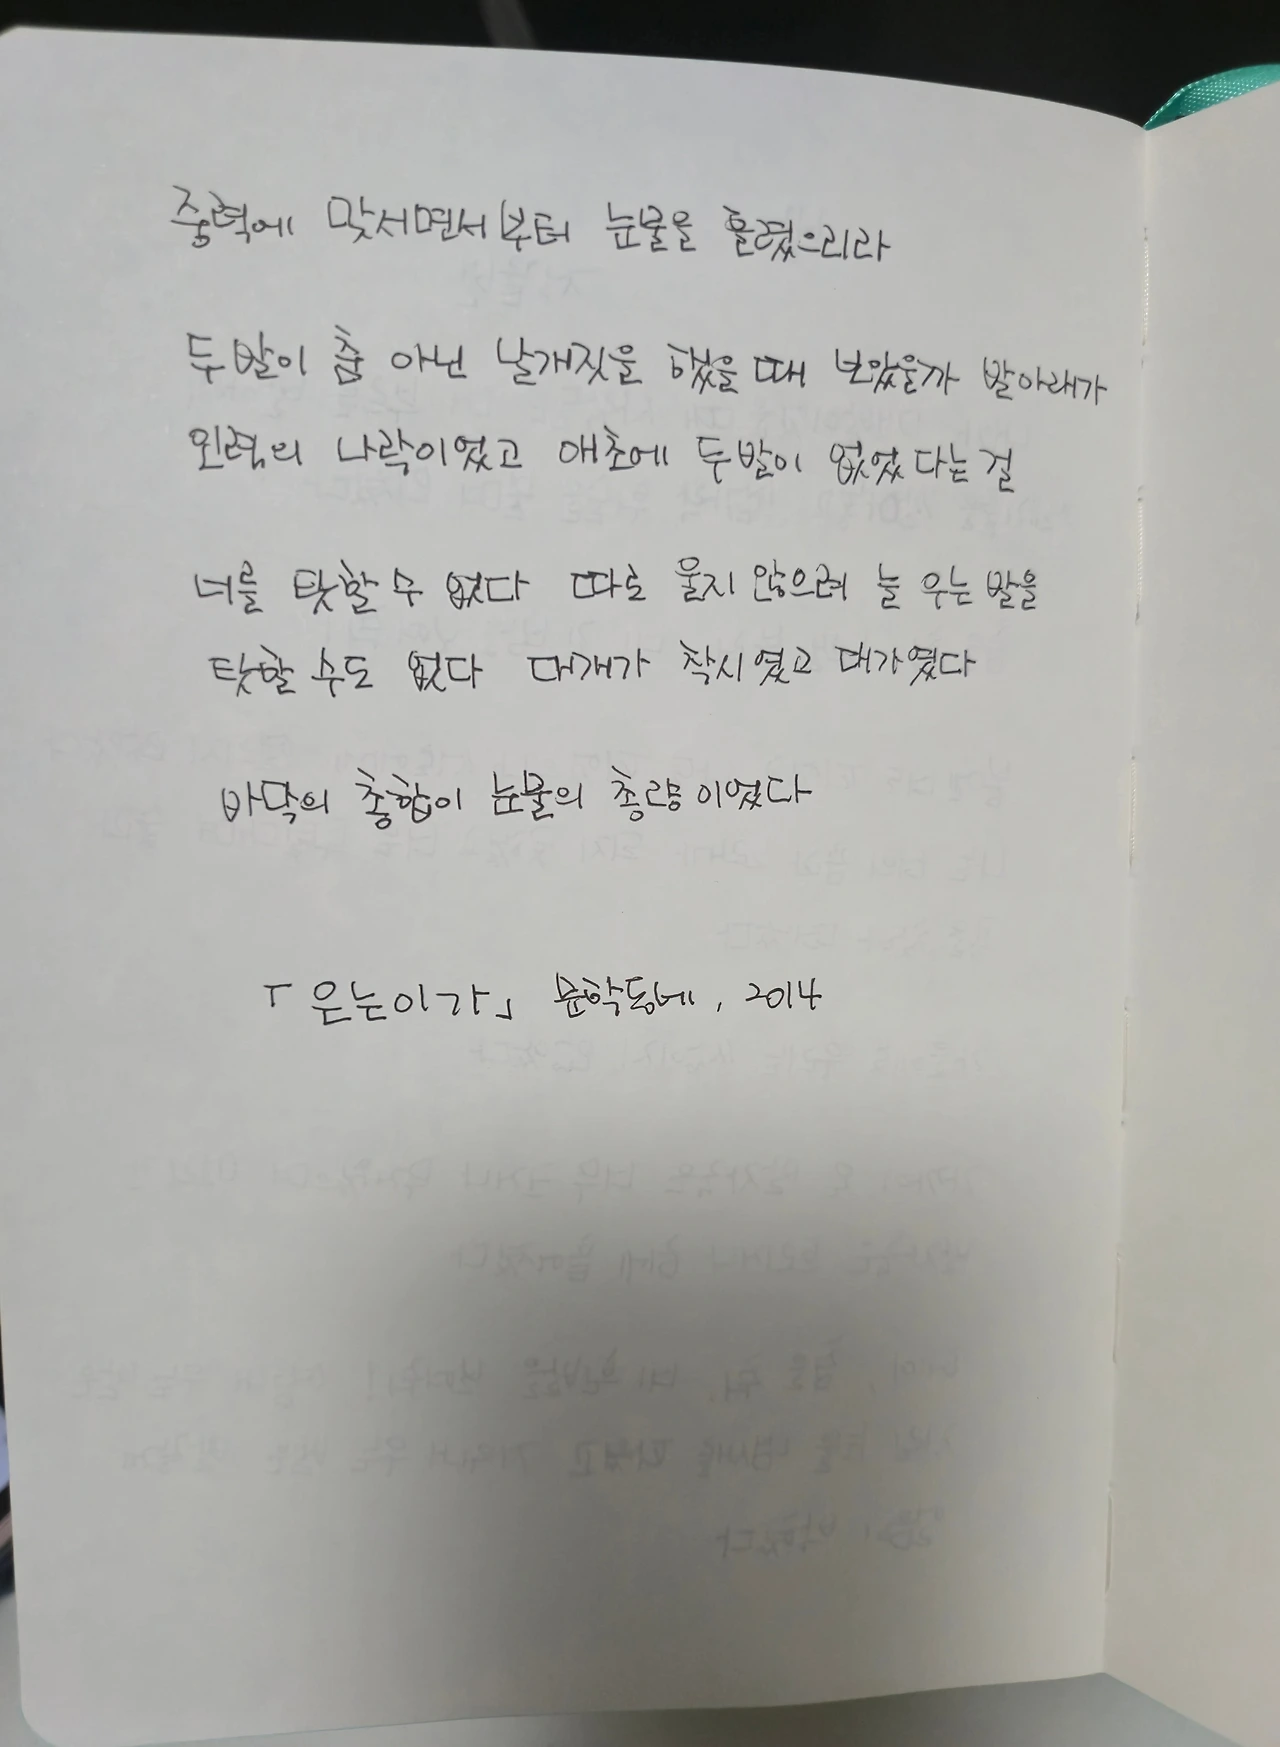 중력에 맞서면서부터 눈물을 흘렸으리라
두 발이 춤 아닌 날개짓을 했을 때 보았을까 발아래가
외력의 나락이었고 애초에 두 발이 없었다는 걸
너를 탓할 수 없다 따로 울지 않으려 늘 우는 발을
탓할 수도 없다 대개가 착시였고 대가였다
바닥의 총합이 눈물의 총량이었다
「은는이가」 문학동네, 2014